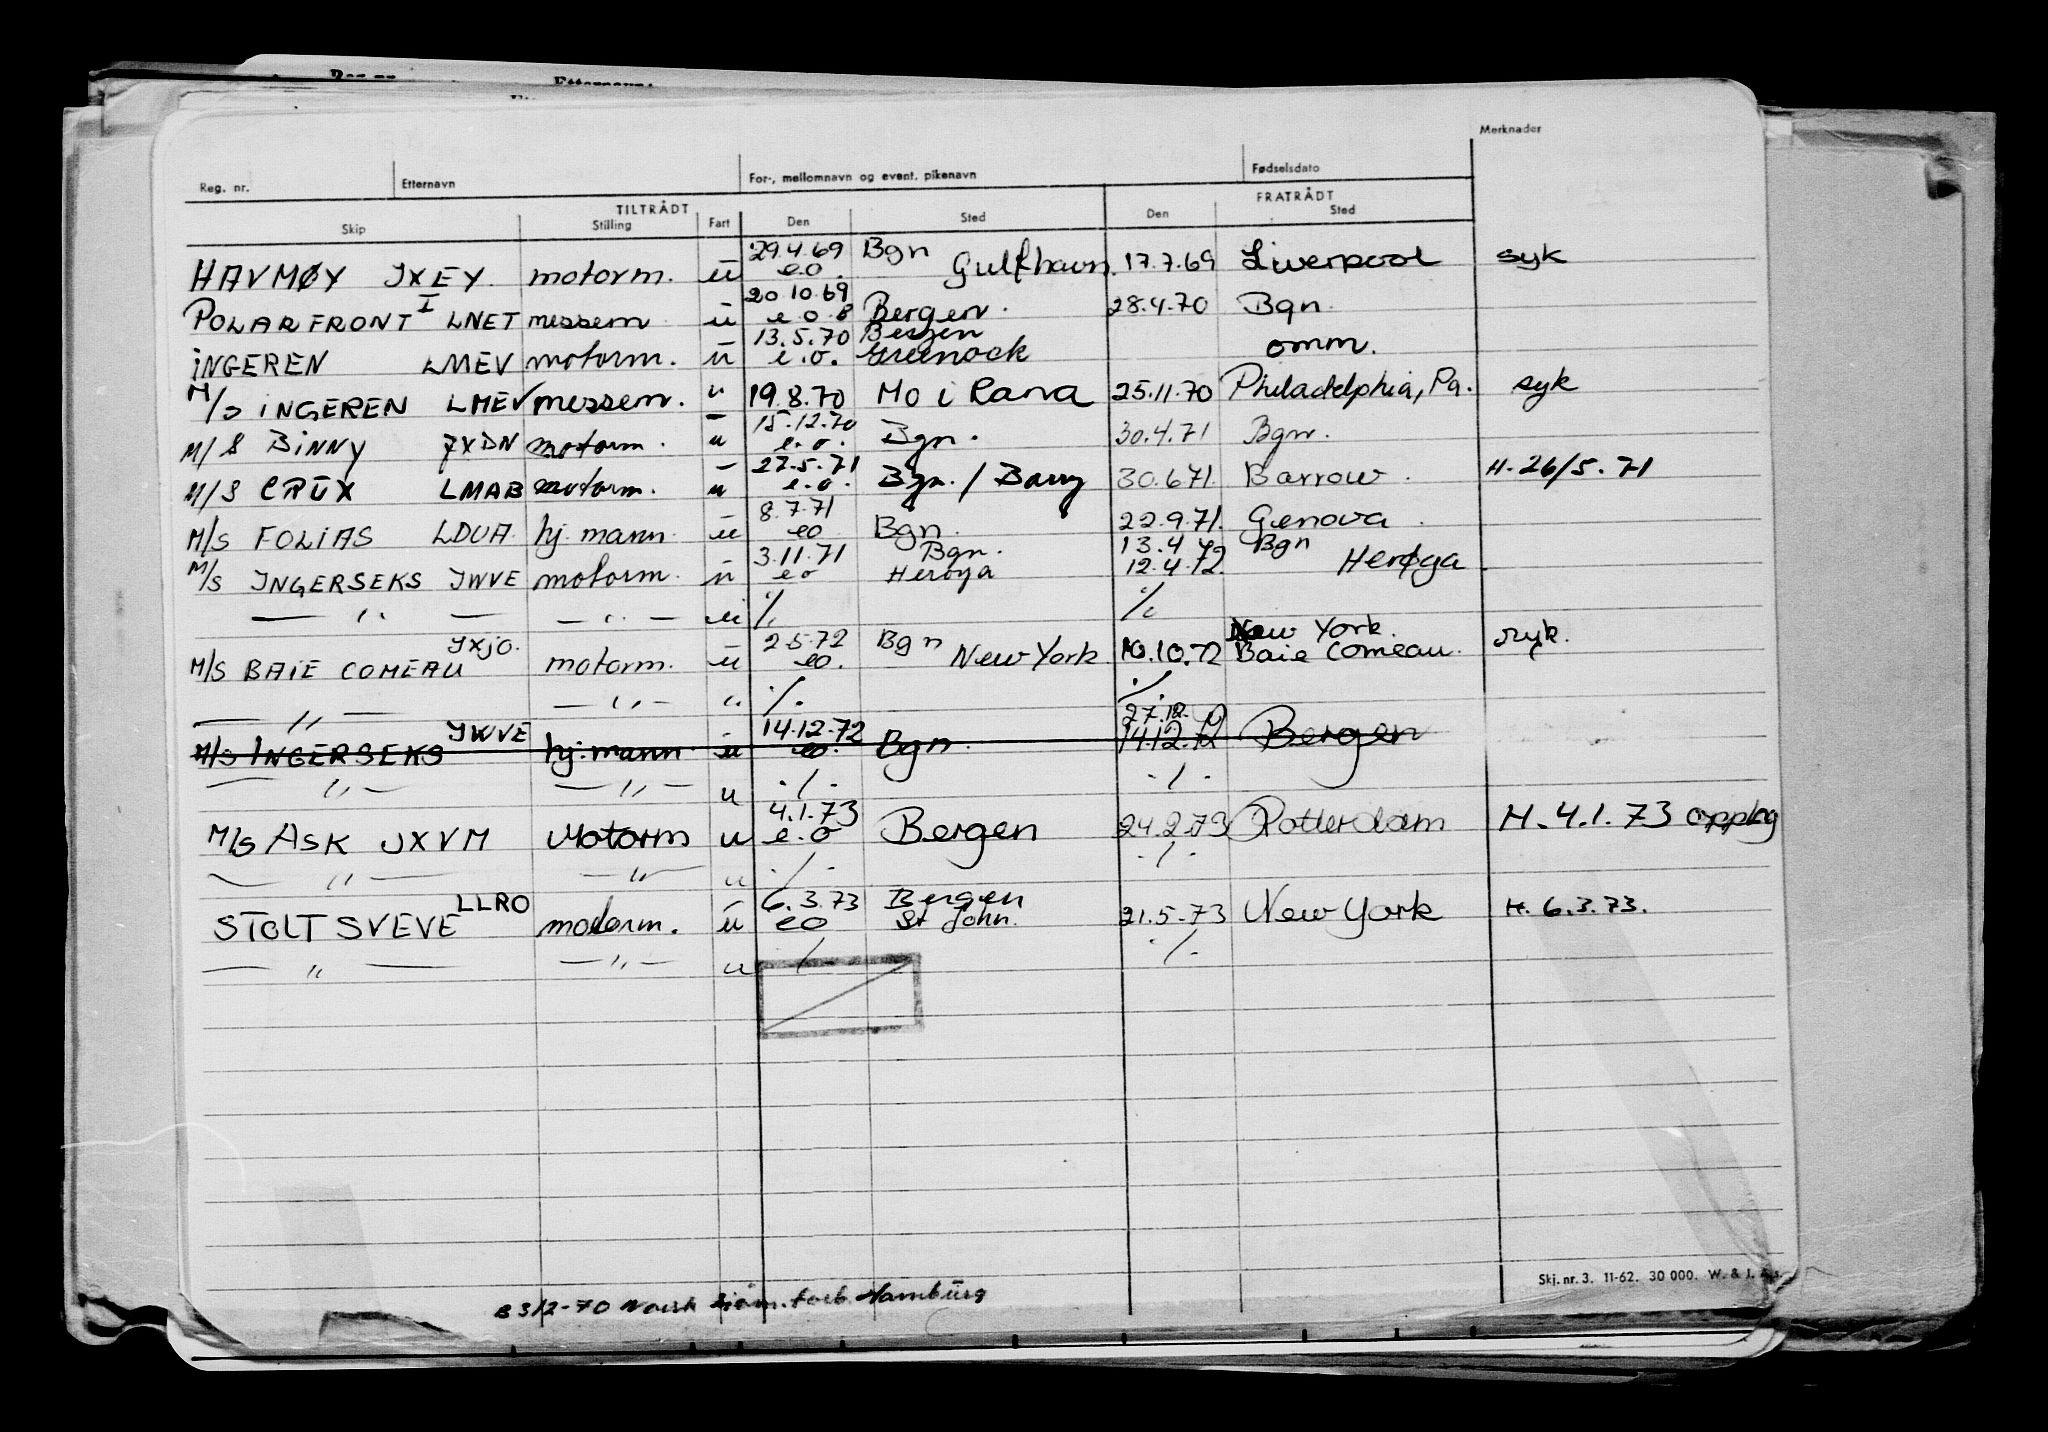 Merknader
Reg. nr. Etternavn For-, mellomnavn og event. pikenavn Fødselsdato
TILTRÅDT FRATRÅDT
Skip Stilling Fart Den Sted Den Sted
29.4.69 Bgn
HAVMØY JXEY. motorm. ū e.o. Gulfhavn. 17.7.69 Liverpool syk
20.10.69
POLARFRONT I LNET messem ū e o 8 Bergen. 28.4.70 Bgn.
13.5.70 Bergen
INGEREN LMEV motorm. ū e.o. Greenock omm.
M/S INGEREN LMEV messem. u 19.8.70 Mo i Rana 25.11.70 Philadelphia, Pa. syk
15.12.70
M/S BINNY JXDN motorm. ū e.o. Bgn. 30.4.71 Bgn.
27.5.71
M/S CRUX LMAB motorm. ū e.o. Bgn. / Barry 30.6.71. Barrow. H. 26/5.71
8.7.71
M/S FOLIAS LDUA. hj. mann. ū eo Bgn. 22.9.71. Genova.
3.11.71 Bgn. 13.4.72 Bgn
M/S INGERSEKS JWVE motorm. ū eo Herøya 12.4.72. Herøya.
— " — — " — ū ./. ./.
JXJO. 2.5.72 Bgn New York.
M/S BAIE COMEAU motorm. ū eo. New York. 10.10.72 Baie Comeau. syk.
— " — — " — " ./. ./.
JWVE 14.12.72 27.12.
M/S INGERSEKS hj. mann. ū eo. Bgn. 14.12.72 Bergen
— " — — " — u ./. ./.
4.1.73
M/S ASK JXVM Motorm u e.o Bergen 24.2.73 Rotterdam H. 4.1.73 opplag
— " — — " — u ./. ./.
LLRO 6.3.73 Bergen
STOLT SVEVE motorm. ū eo St John. 21.5.73 New York H. 6.3.73.
— " — — " — u ./. ./.
Skj. nr. 3. 11-62. 30 000. W. & J.
3/2-70 Norsk sjøm. forb. Hamburg